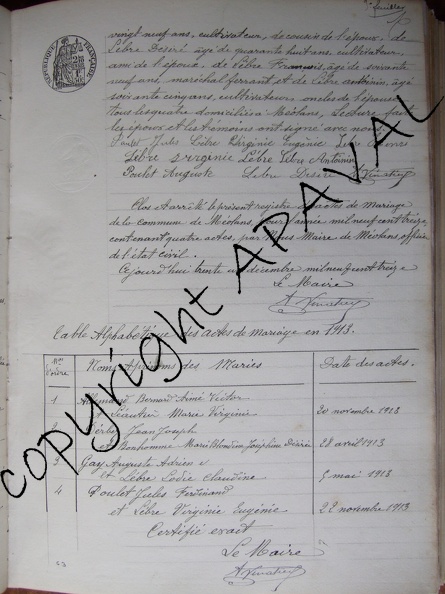 feuillet
RÉPUBLIQUE FRANÇAISE
vingt neuf ans, cultivateur, de cousin de l'époux, de
Lèbre Desiré âgé de quarante huit ans, cultivateur,
ami de l'époux, de Lèbre François, âgé de soixante
neuf ans, maréchal ferrant et de Lèbre Antonin, âgé
soixante cinq ans, cultivateur oncles de l'épouse
tous les quatre domiciliés à Méolans, Lecture faite
les époux et les témoins ont signé avec nous.
Poulet Jules Lèbre Virginie Eugénie Lèbre
Lèbre Lèbre Lèbre Antonin
Poulet Auguste Lèbre Desiré
Clos et arrêté le présent registre des actes de Mariage
de la commune de Méolans, pour l'année mil neuf cent treize
contenant quatre actes, par Nous Maire de Méolans, officier
de l'état civil.
Cejourd'hui trente un décembre mil neuf cent treize
Le Maire
Table Alphabétique des actes de mariage en 1913.
Nos d'ordre
Noms et prénoms des Mariés
Date des actes.
1 Bernard Aimé Victor
et Marie Virginie 20 novembre 1913
2 Jean Joseph
et Marie Joséphine Désirée 28 avril 1913
3 Gay Auguste Adrien
et Lèbre Claudine 5 mai 1913
4 Poulet Jules Ferdinand
et Lèbre Virginie Eugénie 22 novembre 1913
Certifié exact
Le Maire
copyright APAVAL